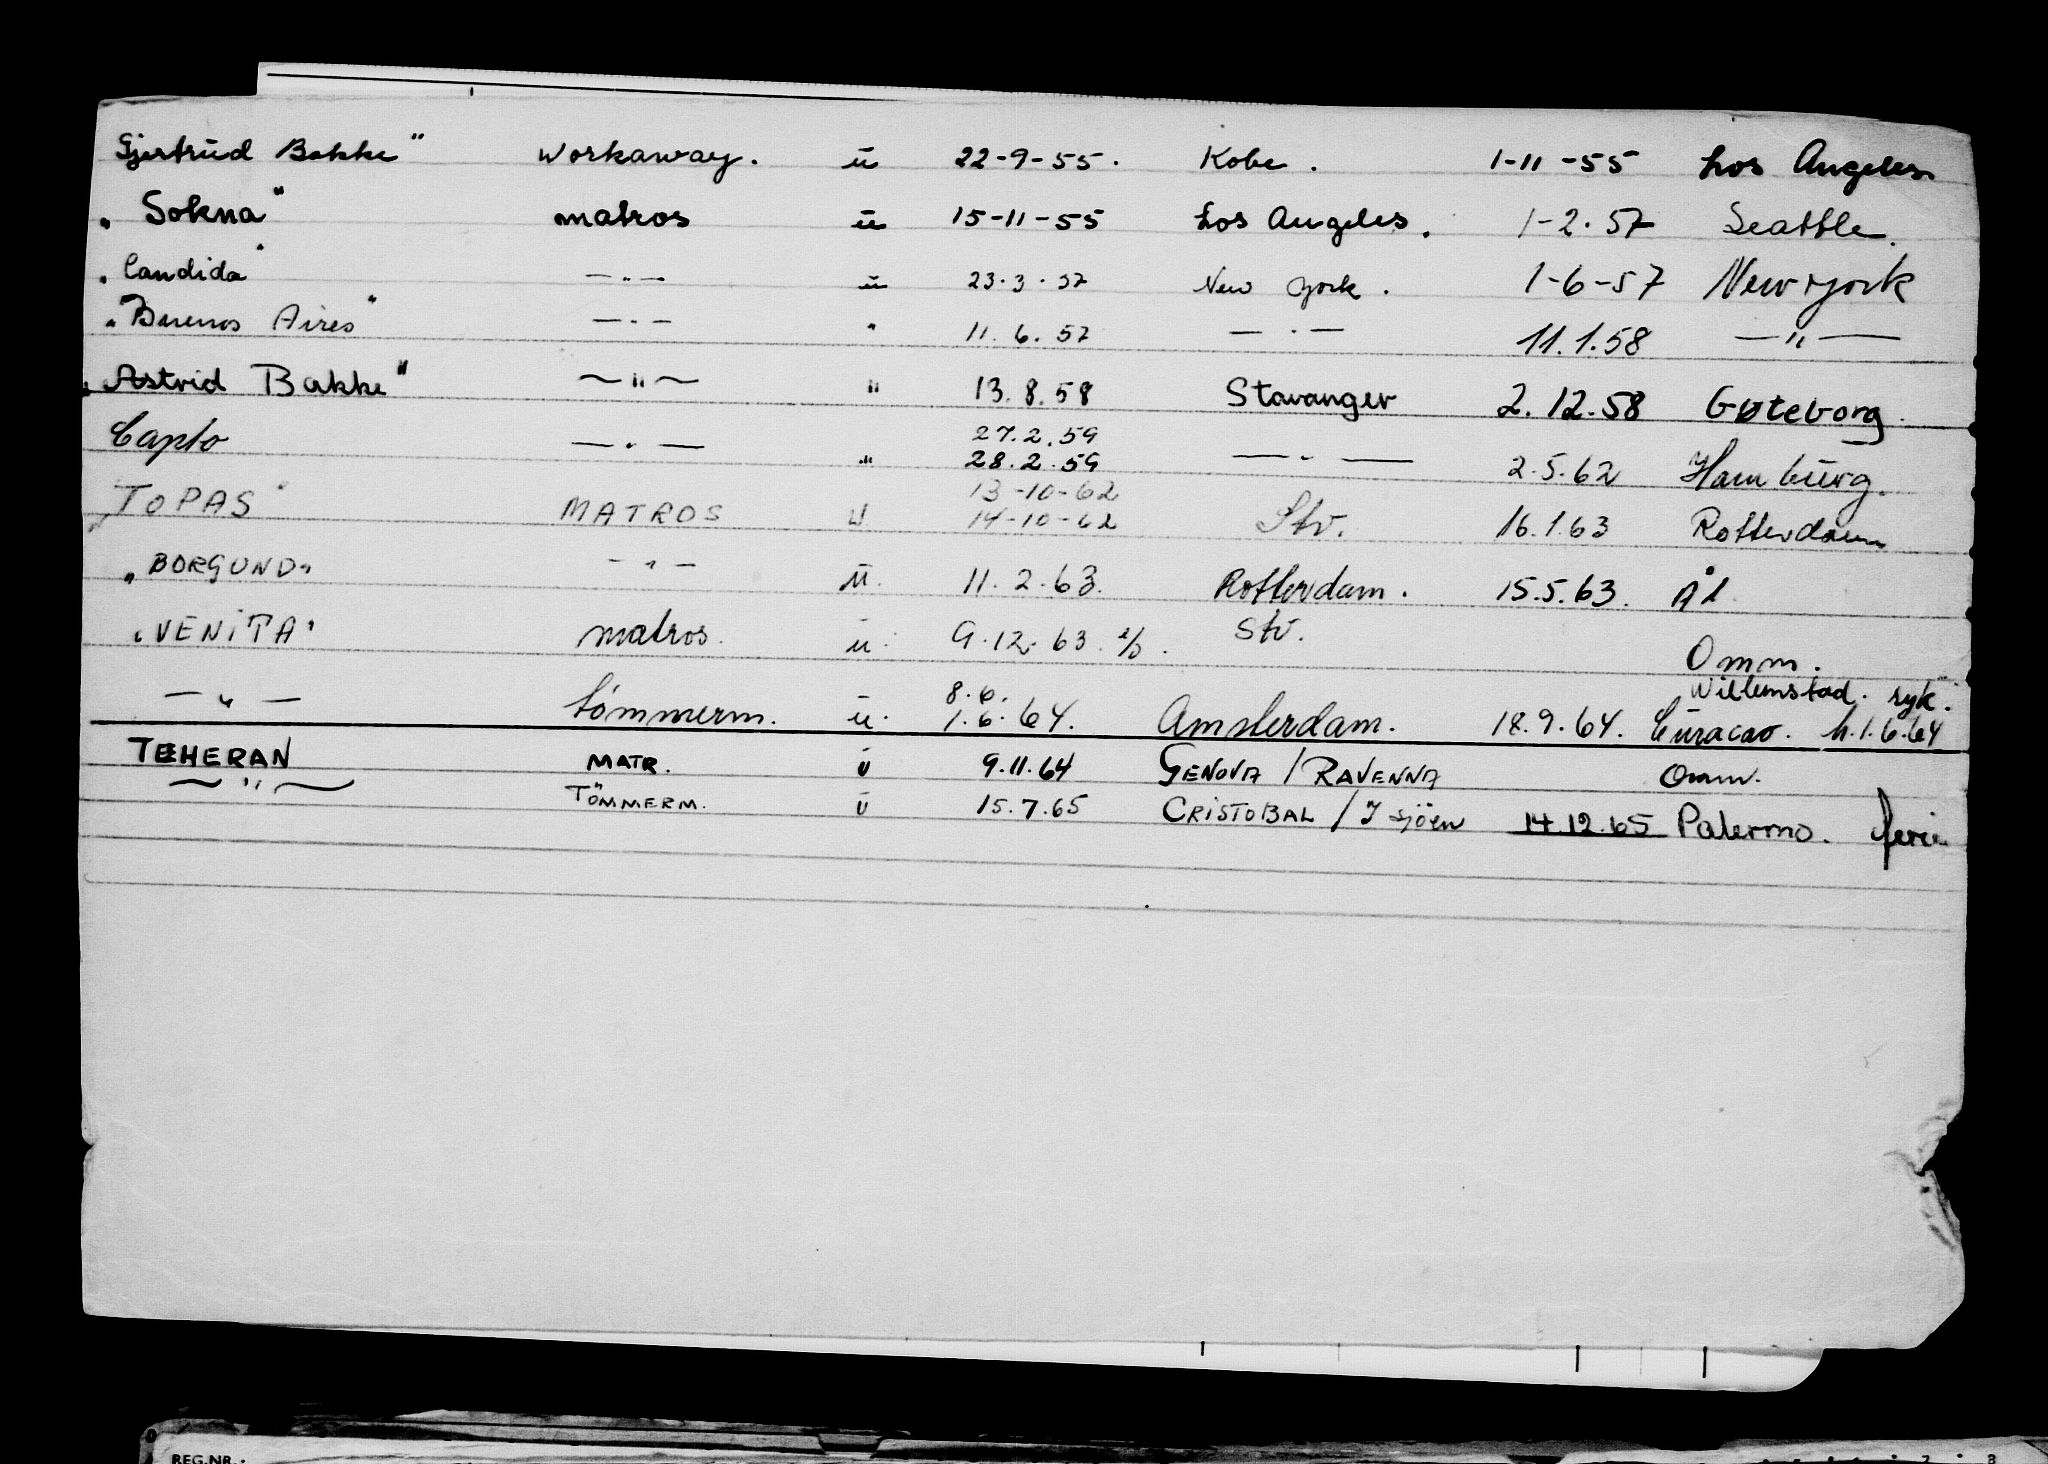 Gjertrud Bakke" workaway. u 22-9-55. Kobe. 1-11-55 Los Angeles
"Sokna" matros u 15-11-55 Los Angeles. 1-2.57 Seattle.
"Candida" —"— u 23.3.57 New York. 1-6-57 New York
"Buenos Aires" —"— " 11.6.57 —"— 11.1.58 —"—
"Astrid Bakke" —"— " 13.8.58 Stavanger 2.12.58 Gøteborg.
27.2.59
Capto —"— " 28.2.59 —"— 2.5.62 Hamburg.
13-10-62
"TOPAS" MATROS u 14-10-62 Stv. 16.1.63 Rotterdam
"BORGUND" —"— u. 11.2.63. Rotterdam. 15.5.63. Ål
"VENITA" matros. u. 9.12.63. Stv. Omm.
8.6. Willemstad. syk.
—"— tömmerm. u. 1.6.64. Amsterdam. 18.9.64. Curacao. h.1.6.64
TEHERAN MATR. u 9.11.64 GENOVA / RAVENNA Omm.
—"— TÖMMERM. u 15.7.65 CRISTOBAL / I sjöen 14.12.65 Palermo. ferie
REG.NR.: